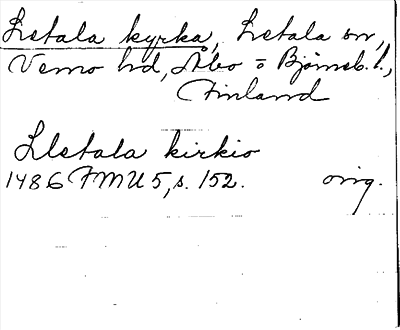 Letala kyrka, Letala sn,
Vemo hd, Åbo o Björneb. l.,
Finland
Lletala kirkio
1486 FMU 5, s. 152. orig.